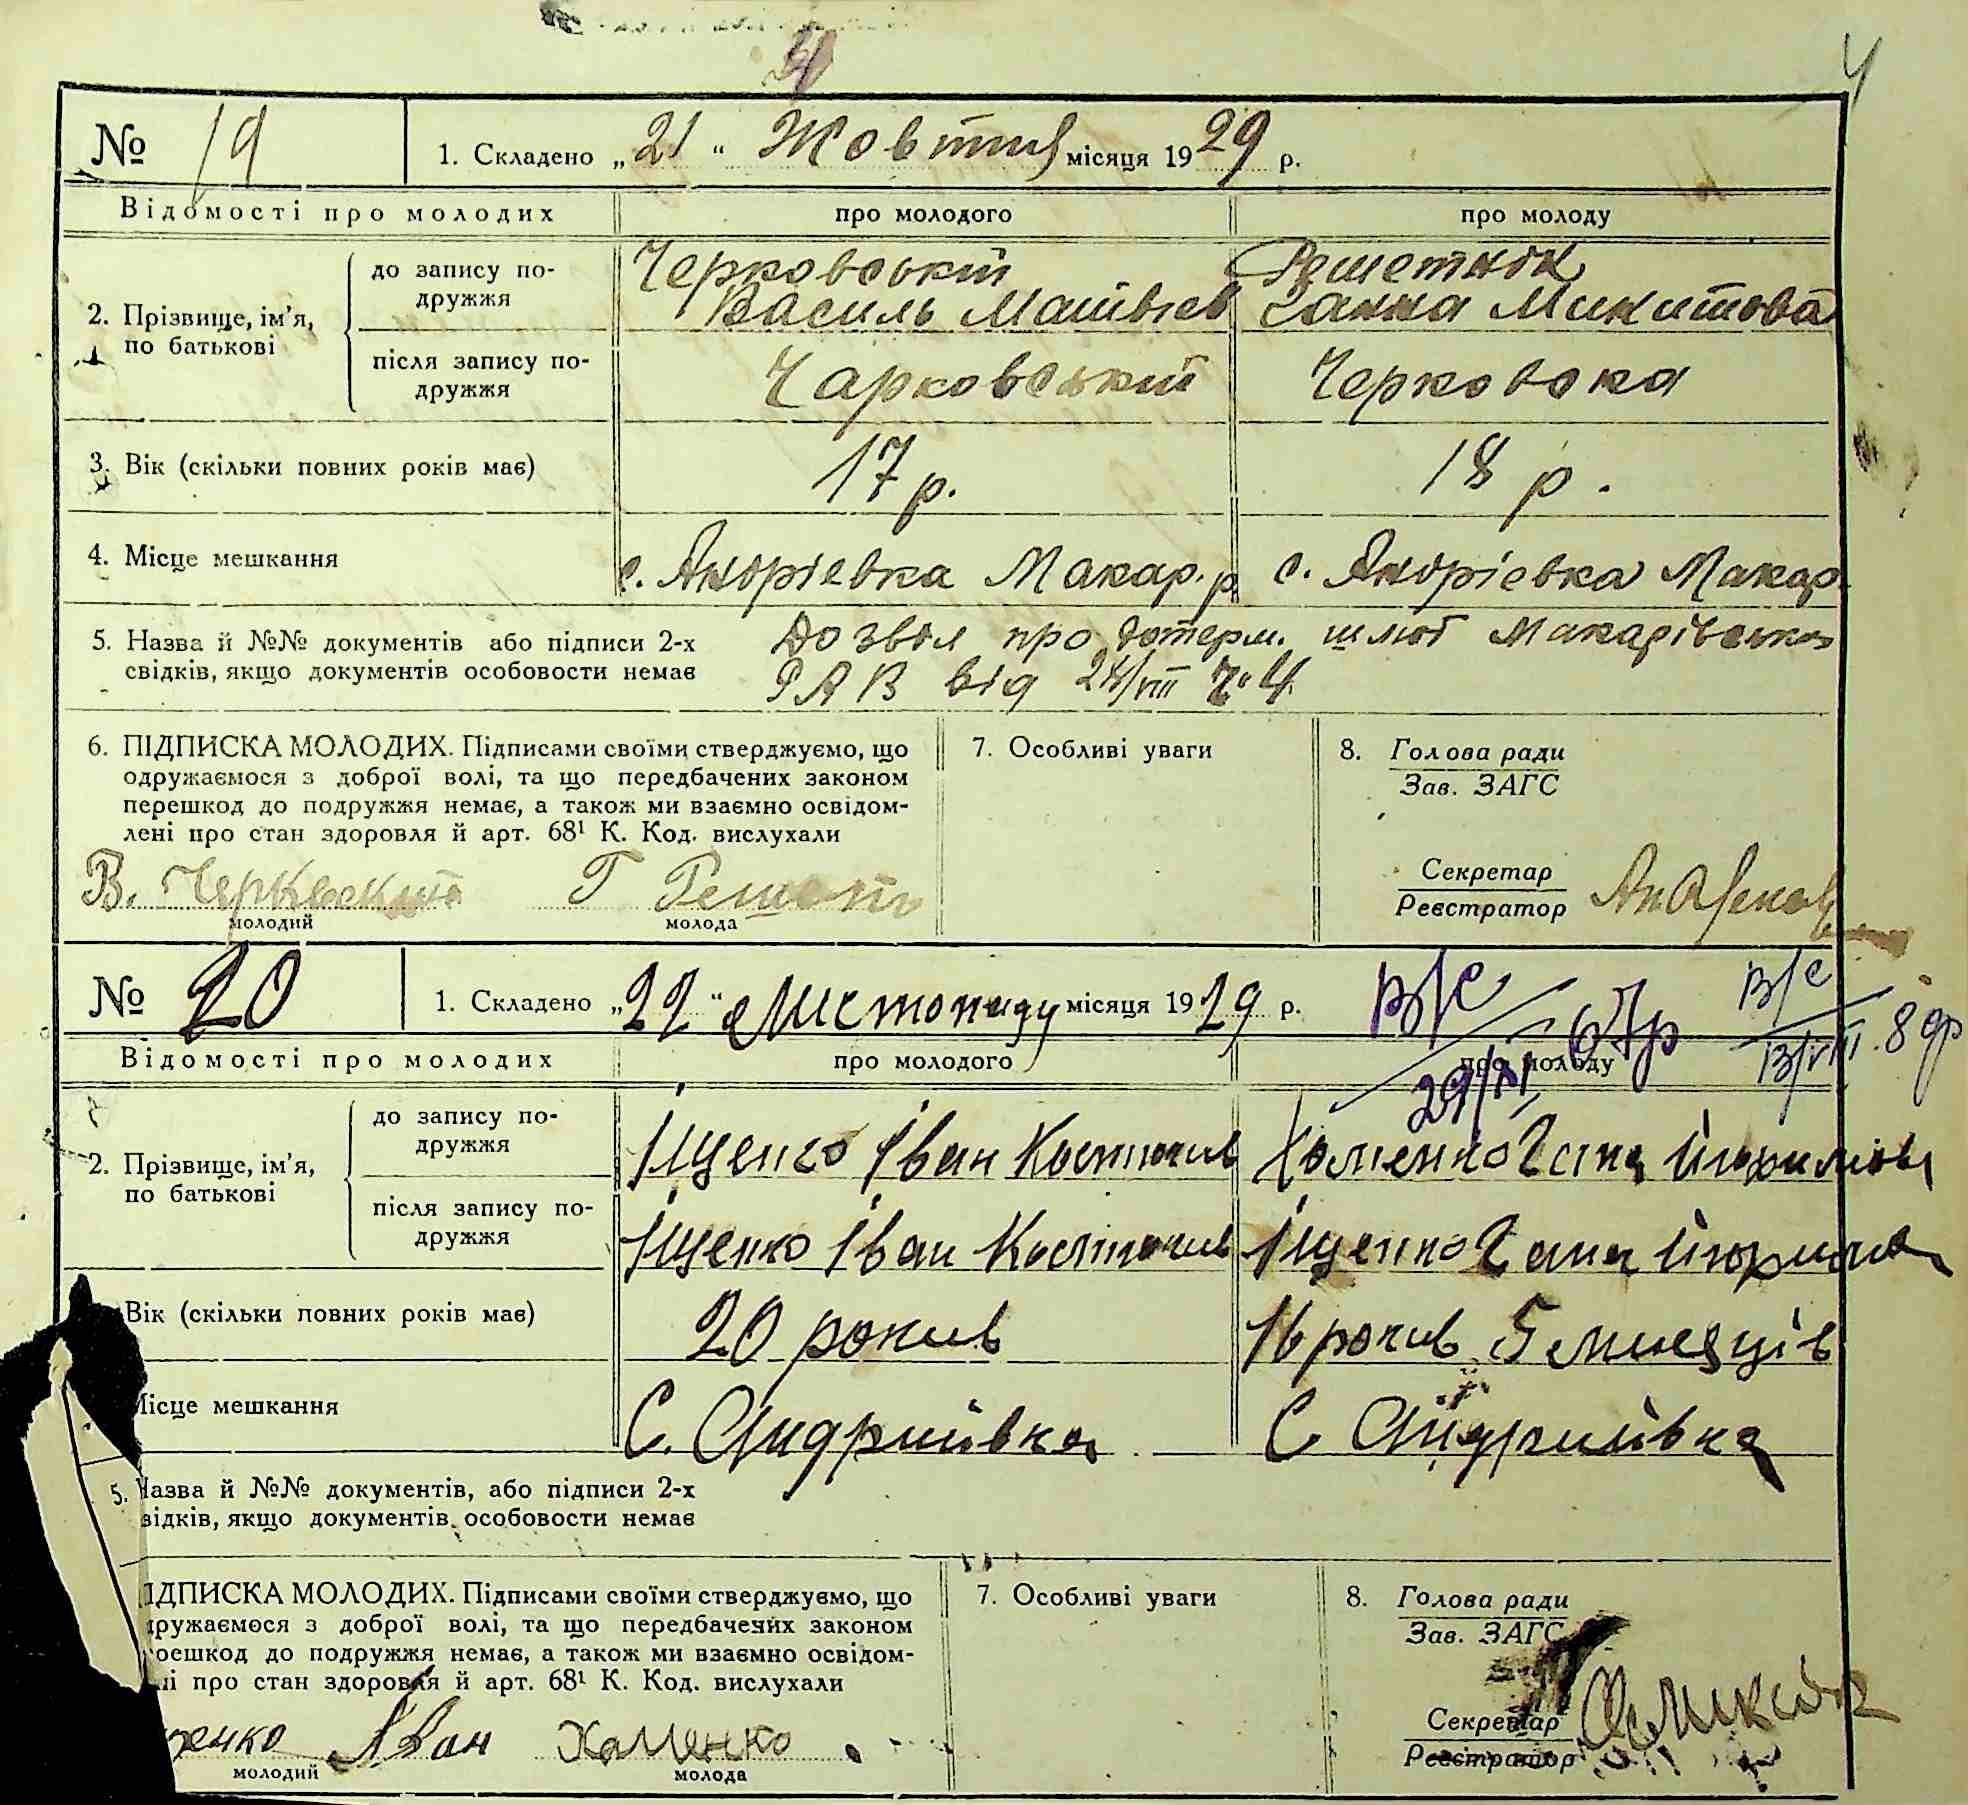 4
№ 19 1. Складено „21" Жовтня місяця 1929 р.
Відомості про молодих про молодого про молоду
2. Прізвище, ім'я, по батькові
до запису подружжя
Черковський Решетник
Василь Матвієв Ганна Микитова
після запису подружжя
Чарковський Черковська
3. Вік (скільки повних років має) 17 р. 18 р.
4. Місце мешкання с. Андрієвка Макар. р. с. Андрієвка Макар.
5. Назва й №№ документів або підписи 2-х Дозвіл про дотерм. шлюб Макарівськ
свідків, якщо документів особовости немає РАВ від 24/VIII ч. 4.
6. ПІДПИСКА МОЛОДИХ. Підписами своїми стверджуємо, що
одружаємося з доброї волі, та що передбачених законом
перешкод до подружжя немає, а також ми взаємно освідом-
лені про стан здоровля й арт. 68¹ К. Код. вислухали
7. Особливі уваги
8. Голова ради
Зав. ЗАГС
Секретар
Реєстратор
В. Г
молодий молода
№ 20 1. Складено „22" Листопаду місяця 1929 р. В/с 67р В/с
29/XI В/VIII. 8 др
Відомості про молодих про молодого про молоду
2. Прізвище, ім'я, по батькові
до запису подружжя
Іщенко Іван Костючив Хоменко Гана
після запису подружжя
Іщенко Іван Костючив Іщенко Гана
Вік (скільки повних років має) 20 рокив 16 рокив 5 мисяців
Місце мешкання С. Андриивка С Андриивка
5. Назва й №№ документів, або підписи 2-х
відків, якщо документів особовости немає
ІДПИСКА МОЛОДИХ. Підписами своїми стверджуємо, що
дружаємося з доброї волі, та що передбачених законом
решкод до подружжя немає, а також ми взаємно освідом-
ні про стан здоровля й арт. 68¹ К. Код. вислухали
7. Особливі уваги
8. Голова ради
Зав. ЗАГС
Секретар
Реєстратор
енко Іван Хоменко
молодий молода